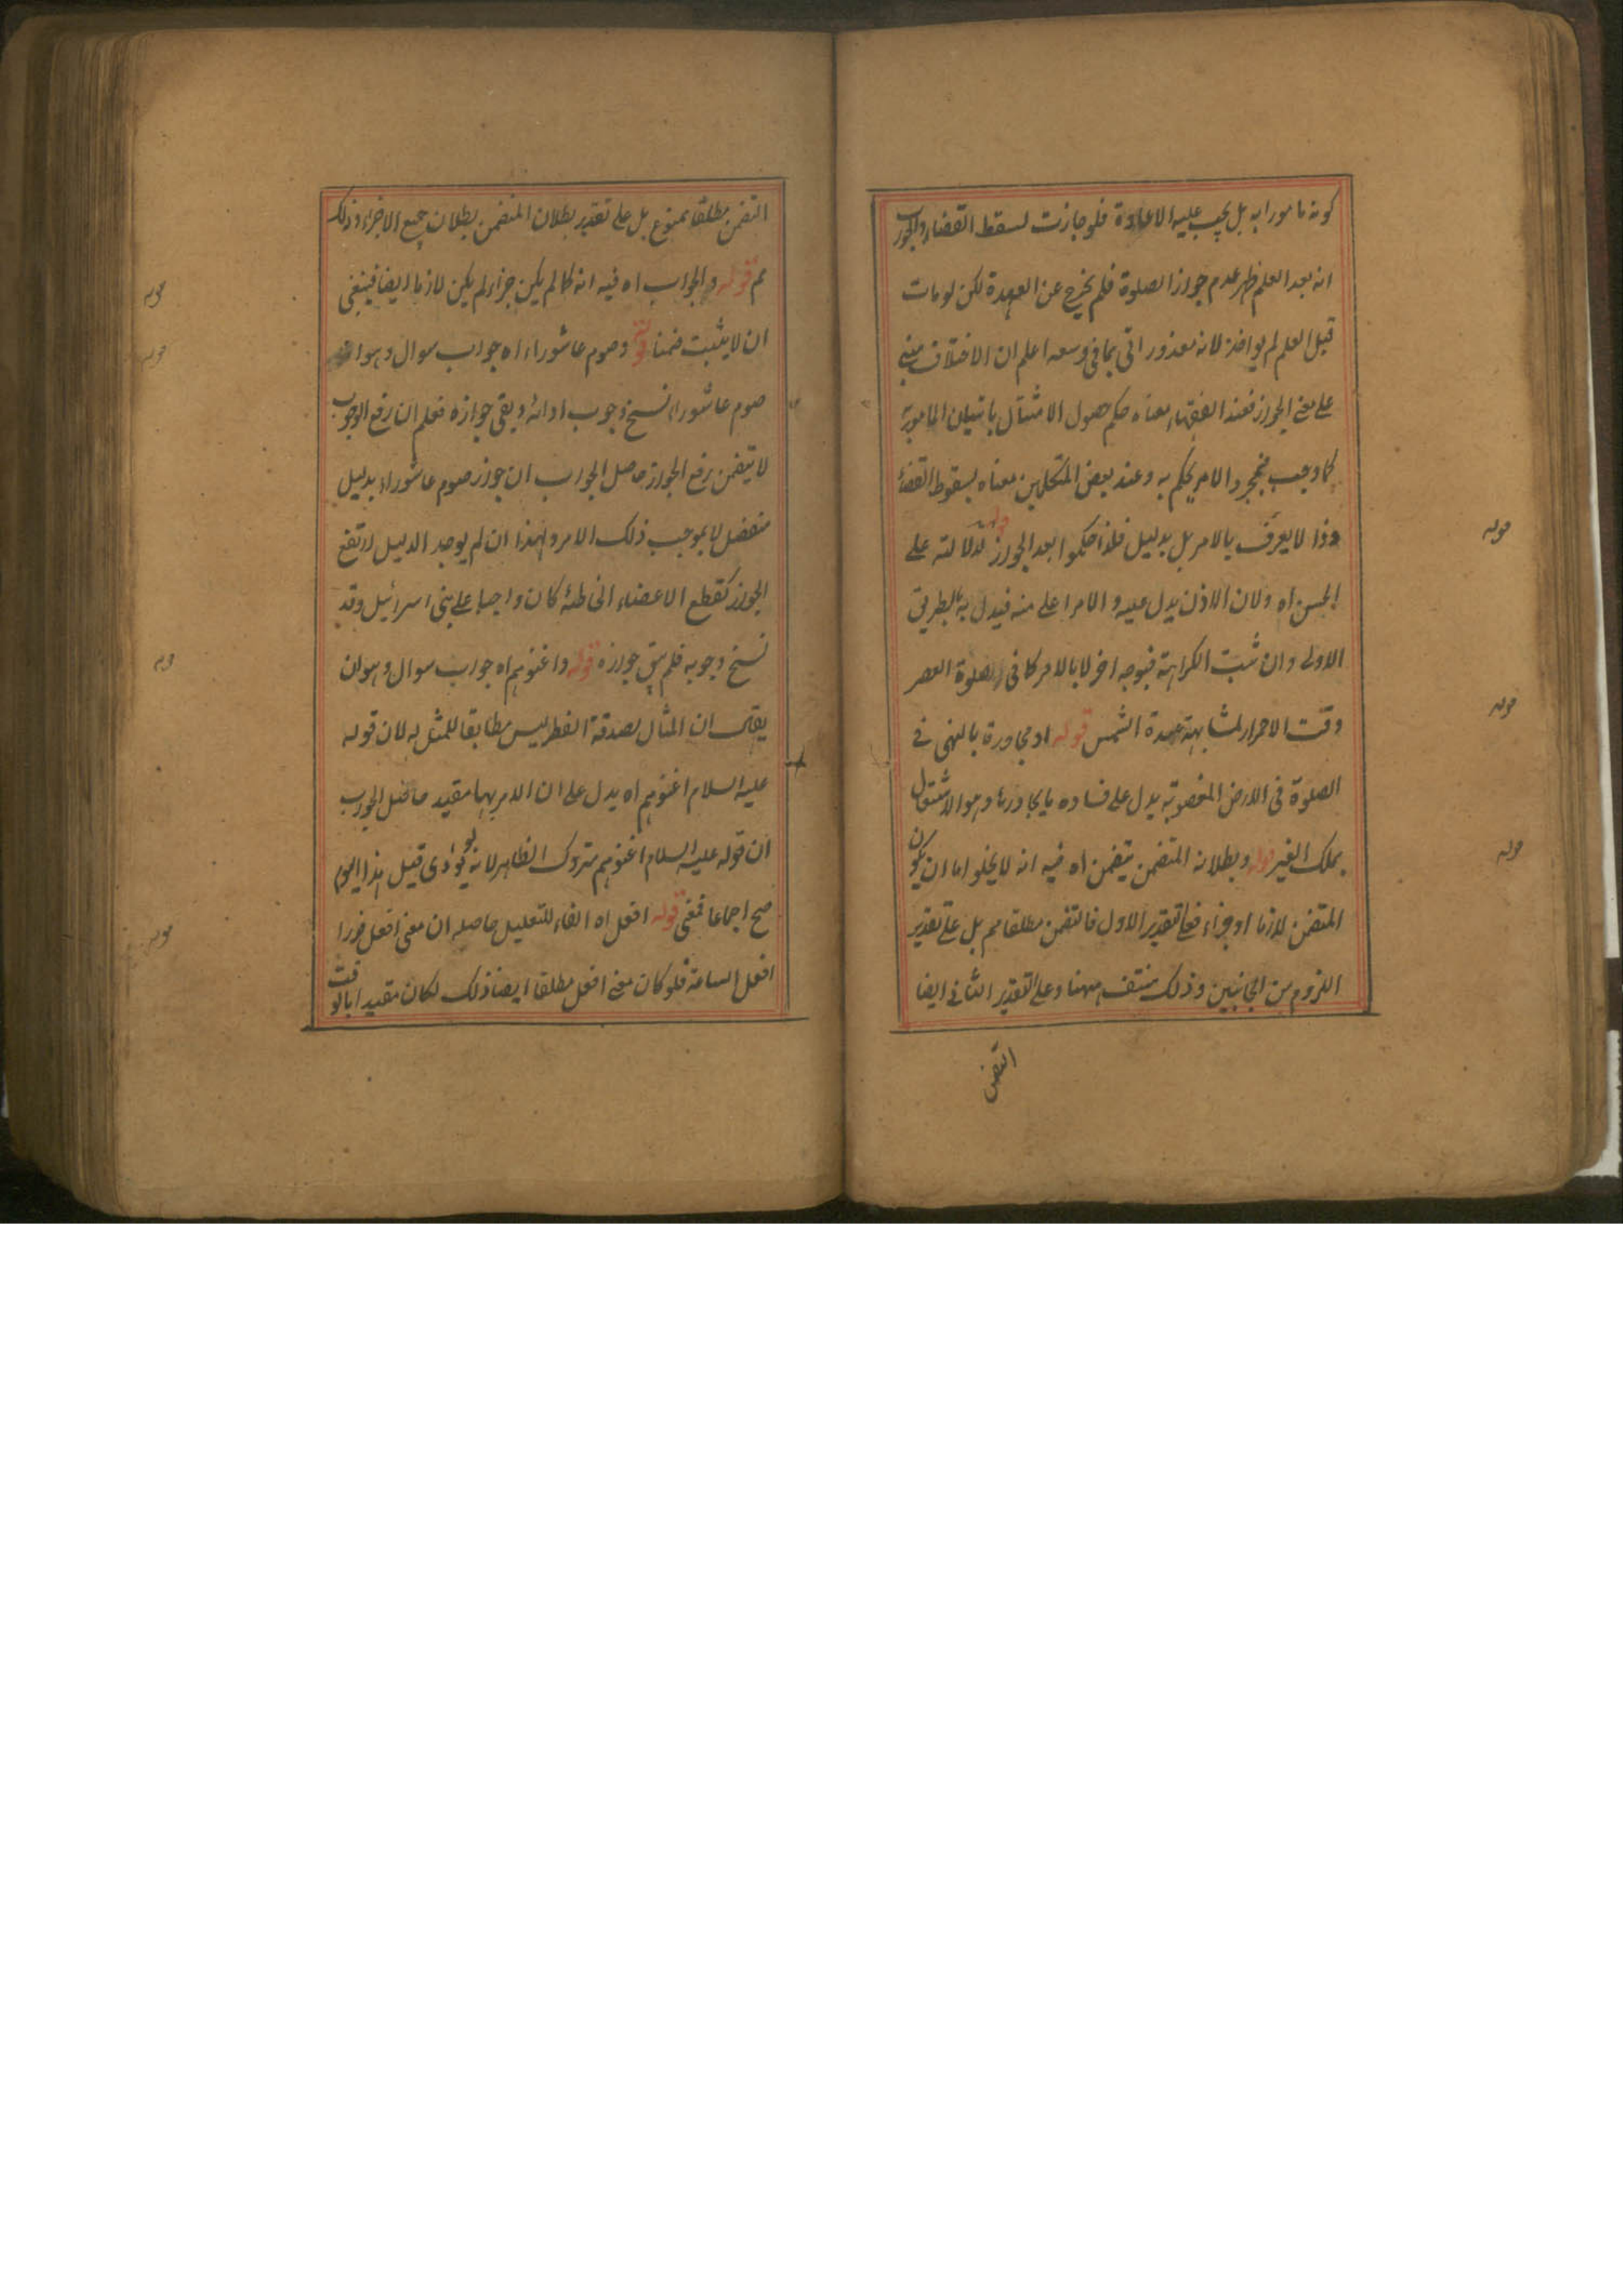 كونه مامورا به بل يجب عليه الاعادة فلو جازت لسقط القضاء والجواب
انه بعد العلم ظهر عدم جواز الصلوة فلم يخرج عن العهدة لكن لو مات
قبل العلم لم يواخذ لانه معذور اتى بما فى وسعه اعلم ان الاختلاف مبنى
على معنى الجواز فعند الفقهاء معناه حكم حصول الامتثال باتيان المامور به
كما وجب فبمجرد الامر يحكم به وعند بعض المتكلمين معناه سقوط القضاء
وذا لا يعرف بالامر بل بدليل فلذا حكموا بعد الجواز قوله لدلالته على
الحسن اه ولان الاذن يدل عليه والامر اعلى منه فيدل به بالطريق
الاولى وان ثبت الكراهة فبوجه اخر لا بالامر كما فى صلوة العصر
وقت الاحمرار لمشابهة عبدة الشمس قوله او مجاورة بالنهى فى
الصلوة فى الارض المغصوبة يدل على فساده ما يجاورها وهو الاشتغال
بملك الغير قوله وبطلانه المتضمن يتضمن اه فيه انه لا يخلو اما ان يكون
المتضمن لازما او جزاء فعلى تقدير الاول فالتضمن مطلقا مم بل على تقدير
اللزوم من الجانبين وذلك منتف ههنا وعلى التقدير الثانى ايضا
التضمن
التضمن مطلقا ممنوع بل على تقدير بطلان المتضمن بطلان جميع الاجزاء وذلك
مم قوله والجواب اه فيه انه كما لم يكن جزاء لم يكن لازما ايضا فينبغى
ان لا يثبت ضمنا قوله وصوم عاشوراء اه جواب سوال وهو ان
صوم عاشوراء نسخ وجوب ادائه وبقى جوازه فعلم ان رفع الوجوب
لا يتضمن رفع الجواز حاصل الجواب ان جواز صوم عاشوراء بدليل
منفصل لا بموجب ذلك الامر ولهذا ان لم يوجد الدليل ارتفع
الجواز كقطع الاعضاء الخاطئة كان واجبا على بنى اسرائيل وقد
نسخ وجوبه فلم يبق جوازه قوله واغنوهم اه جواب سوال وهو ان
يقال ان المثال لصدقة الفطر ليس مطابقا للمثل به لان قوله
عليه السلام اغنوهم اه يدل على ان الامر بها مقيد حاصل الجواب
ان قوله عليه السلام اغنوهم متروك الظاهر لانه لو ادى قبل هذا اليوم
صح اجماعا قوله افعل اه الفاء للتعليل حاصله ان معنى افعل فورا
افعل الساعة فلو كان معنى افعل مطلقا ايضا ذلك لكان مقيدا بالوقت